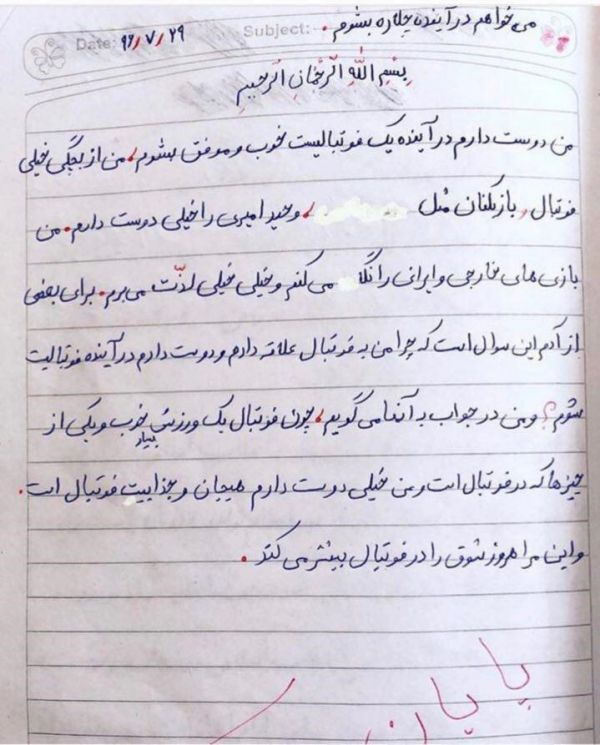 می خواهم در آینده چکاره بشوم.
Date: ۹۶/۷/۲۹ Subject:
بِسْمِ اللهِ الرَّحْمانِ الرَّحیمِ
من دوست دارم در آینده یک فوتبالیست خوب و موفق بشوم، من از بچگی خیلی
فوتبال و بازیکنان مثل ، وحید امیری را خیلی دوست دارم. من
بازی های خارجی و ایرانی را نگاه می کنم و خیلی خیلی لذّت می برم. برای بعضی
از آدم این سوال است که چرا من به فوتبال علاقه دارم و دوست دارم در آینده فوتبالیست
بشوم؟ و من در جواب به آنها می گویم، چون فوتبال یک ورزش بسیار خوب و یکی از
چیزها که در فوتبال است و من خیلی دوست دارم هیجان و جذابیت فوتبال است.
و این مرا هر روز شوق را در فوتبال بیشتر می کند.
پایان